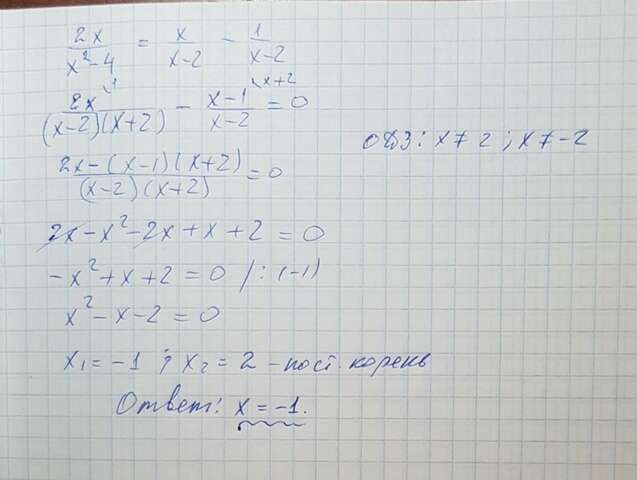 2x/(x²-4) = x/(x-2) - 1/(x-2)
2x\1/((x-2)(x+2)) - (x-1)\x+2/(x-2) = 0
ОДЗ: x≠2; x≠-2
(2x-(x-1)(x+2))/((x-2)(x+2)) = 0
2x-x²-2x+x+2=0
-x²+x+2=0 /:(-1)
x²-x-2=0
x₁=-1; x₂=2 - пост. корень
Ответ: x=-1.